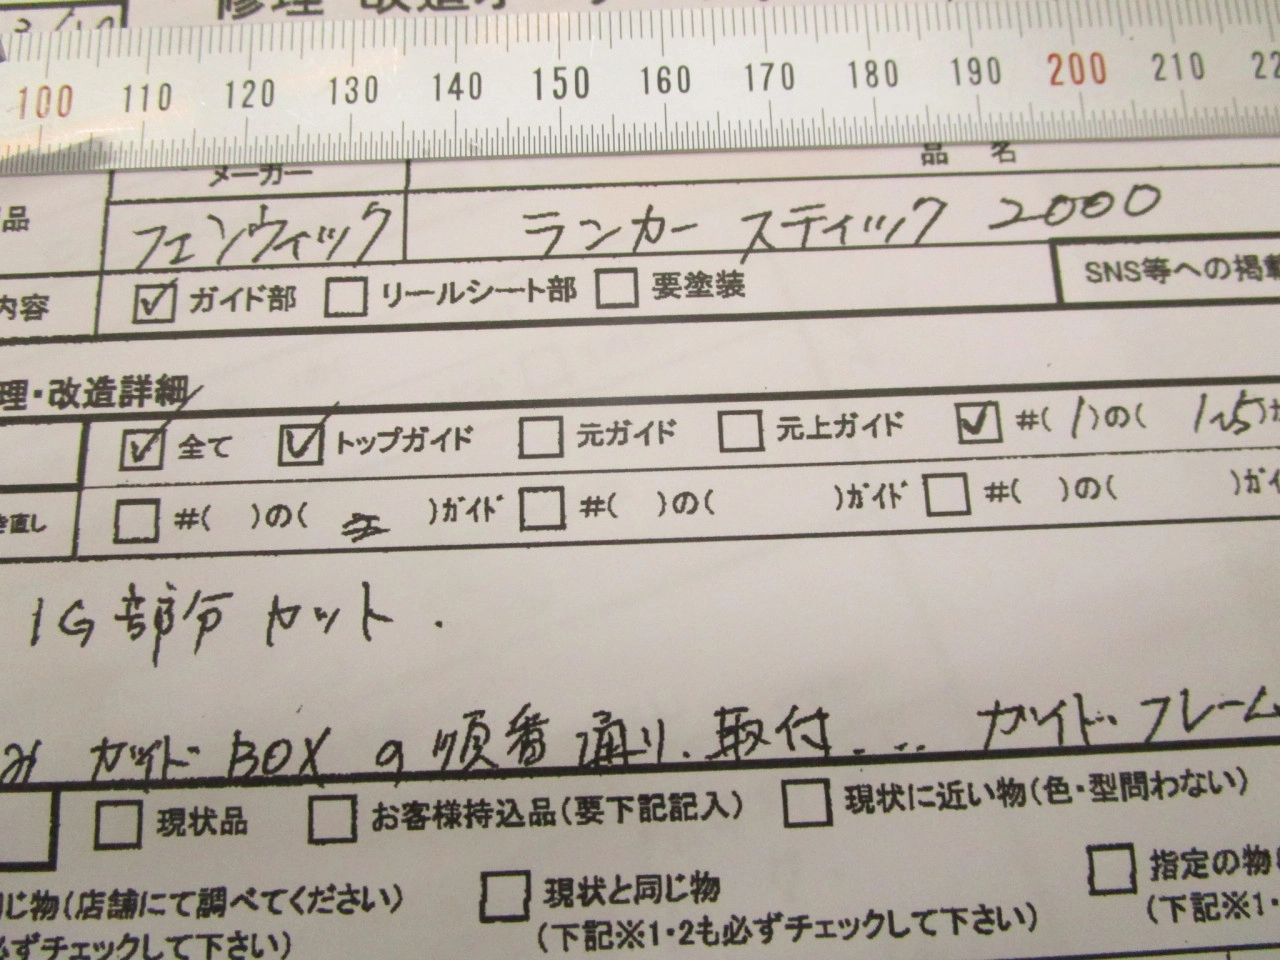 修理・改造オーダー
100 110 120 130 140 150 160 170 180 190 200 210 22
メーカー 品名
品 フェンウィック ランカースティック 2000
内容 ☑ガイド部 □リールシート部 □要塗装 SNS等への掲載
理・改造詳細
☑全て ☑トップガイド □元ガイド □元上ガイド ☑#(1)の(1~5)ガ
き直し □#( )の( )ガイド □#( )の( )ガイド □#( )の( )ガイ
1G部分カット.
ガイドBOXの順番通り、取付... ガイドフレーム
□現状品 □お客様持込品(要下記記入) □現状に近い物(色・型問わない)
同じ物(店舗にて調べてください) □現状と同じ物 □指定の物
必ずチェックして下さい) (下記※1・2も必ずチェックして下さい) (下記※1・